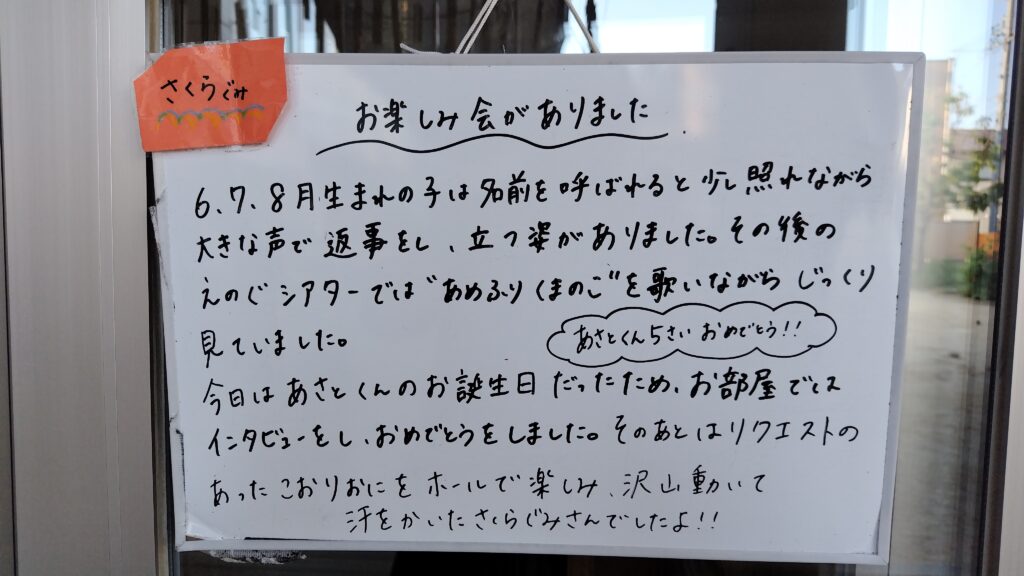 さくらぐみ
お楽しみ会がありました
6、7、8月生まれの子は名前を呼ばれると少し照れながら
大きな声で返事をし、立つ姿がありました。その後の
えのぐシアターでは"あめふりくまのこ"を歌いながらじっくり
見ていました。
あさとくん5さいおめでとう!!
今日はあさとくんのお誕生日だったため、お部屋では
インタビューをし、おめでとうをしました。そのあとはリクエストの
あったこおりおにをホールで楽しみ、沢山動いて
汗をかいたさくらぐみさんでしたよ!!